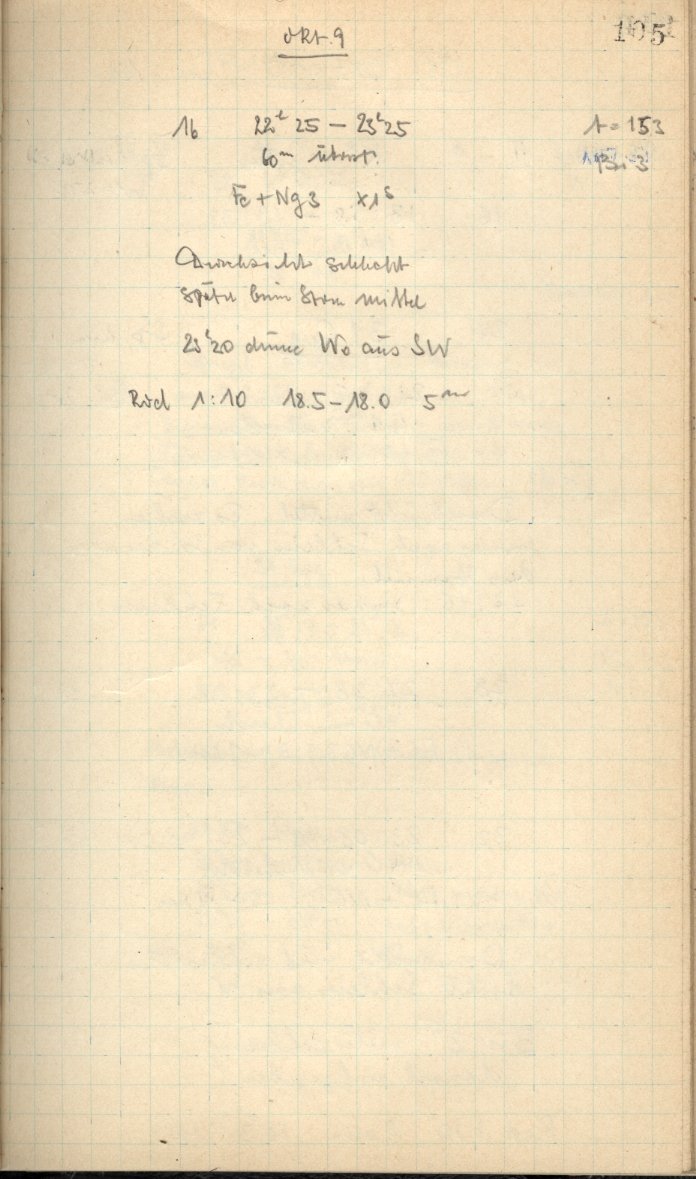 Okt. 9 105
16 22ʰ25 – 23ʰ25 t = 153
60ᵐ überst.
Fe + Ng3 ×1ˢ
Durchsicht schlecht
später beim Strom mittel
23ʰ20 dünne Wo aus SW
Röd 1:10 18.5–18.0 5ᵐ